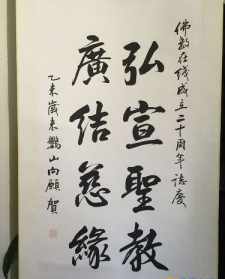 佛教在线成立二十周年誌慶
弘宣聖教
廣結慈緣
乙未歲末鸚山向願賀